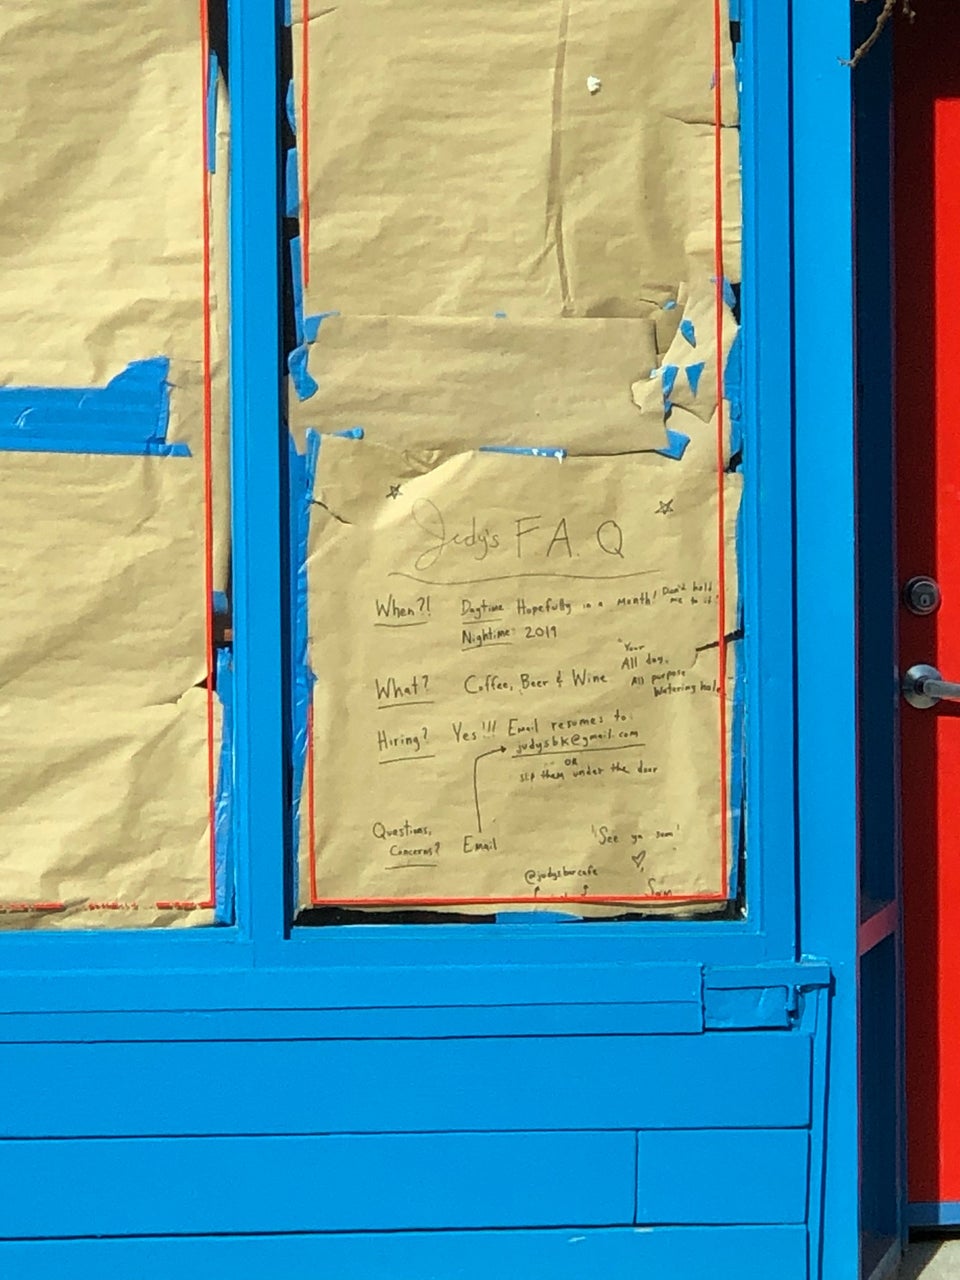 Judy's F.A.Q
When?! Daytime: Hopefully in a month! Don't hold me to it!
Nightime: 2019
What? Coffee, Beer & Wine "Your All day, All purpose Watering hole
Hiring? Yes!!! Email resumes to:
judysbk@gmail.com
OR
slip them under the door
Questions, Concerns? Email
"See ya soon"
@judysbarcafe
Sam